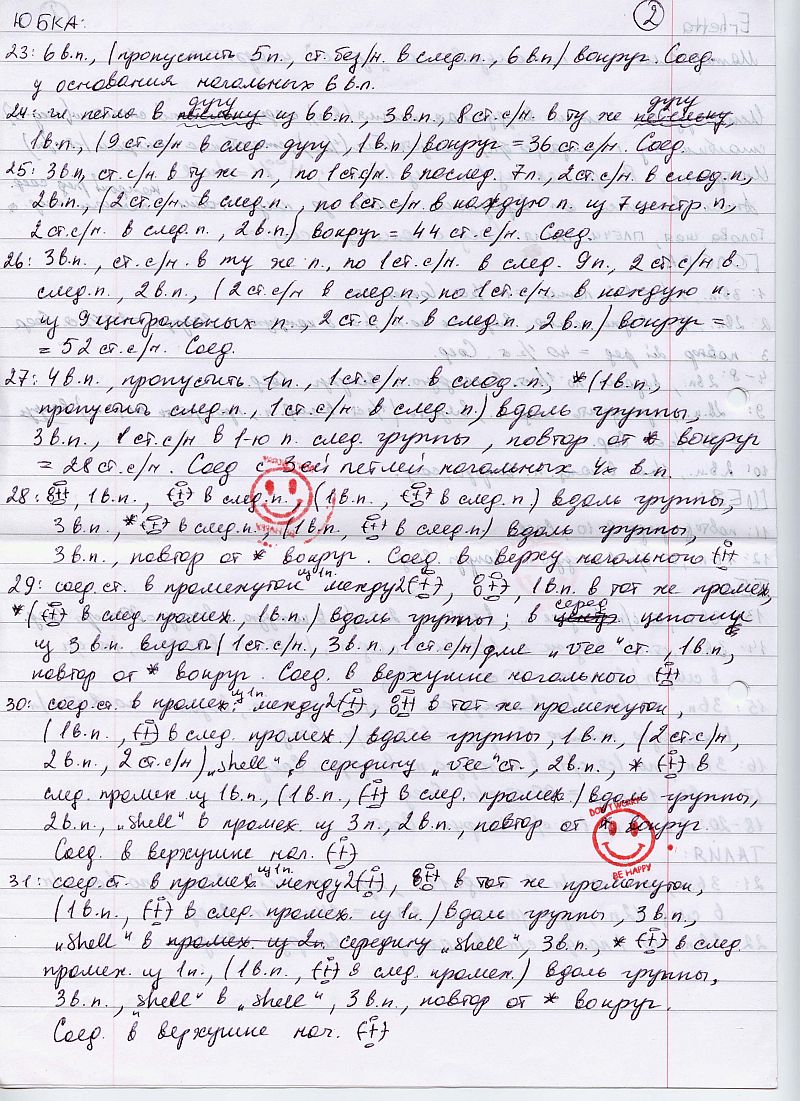 2
ЮБКА:
23: 6 в.п., (пропустить 5п., ст. без/н. в след.п., 6 в.п) вокруг. Соед.
у основания начальных 6 в.п.
24: гл петля в дугу из 6 в.п., 3 в.п., 8 ст.с/н. в ту же дугу,
1в.п., (9 ст.с/н в след. дугу, 1 в.п.) вокруг = 36 ст.с/н. Соед.
25: 3вп, ст.с/н. в ту же п., по 1 ст.с/н. в послед. 7п., 2 ст.с/н. в след.п.,
2в.п., (2 ст.с/н. в след.п., по 1 ст.с/н. в каждую п. из 7 центр. п.,
2 ст.с/н. в след.п., 2 в.п.) вокруг = 44 ст.с/н. Соед.
26: 3в.п., ст.с/н. в ту же п., по 1 ст.с/н. в след. 9п., 2 ст.с/н в.
след.п., 2в.п., (2 ст.с/н в след.п., по 1 ст.с/н. в каждую п
из 9 центральных п., 2 ст.с/н. в след.п., 2 в.п.) вокруг =
= 52 ст.с/н. Соед.
27: 4 в.п., пропустить 1п., 1 ст.с/н. в след.п., *(1в.п.,
пропустить след.п., 1 ст.с/н. в след.п.) вдоль группы,
3в.п., 1 ст.с/н в 1-ю п. след. группы, повтор от * вокруг
= 28 ст.с/н. Соед с 3ей петлей начальных 4х в.п.
28: 1в.п., в след.п., (1в.п., в след.п) вдоль группы,
3 в.п., * в след.п., (1в.п, в след.п) вдоль группы,
3в.п., повтор от * вокруг. Соед. в верху начального
29: соед.ст. в промежуток из 1п. между 2 , 1в.п. в тот же промеж,
*( в след промеж., 1в.п.) вдоль группы, в серед. цепочки
из 3 в.п. вязать (1 ст.с/н., 3в.п., 1 ст.с/н) для „vee" ст., 1в.п.,
повтор от * вокруг. Соед. в верхушке начального
30: соед.ст. в промеж. из 1п. между 2 , в тот же промежуток,
(1в.п., в след. промеж.) вдоль группы, 1 в.п., (2 ст.с/н,
2в.п., 2 ст.с/н) „shell" в середину „vee" ст., 2в.п., * в
след. промеж из 1в.п., (1в.п., в след. промеж) вдоль группы,
2в.п., „shell" в промеж. из 3п., 2в.п., повтор от * вокруг.
Соед. в верхушке нач.
31: соед.ст. в промеж. из 1п. между 2 , в тот же промежуток,
(1в.п., в след. промеж. из 1п.) вдоль группы, 3 в.п.,
„Shell" в промеж. из 2п середину „shell", 3в.п., * в след.
промеж. из 1п., (1в.п., в след. промеж.) вдоль группы,
3в.п., „shell" в „shell", 3в.п., повтор от * вокруг.
Соед. в верхушке нач.
DON'T WORRY
BE HAPPY